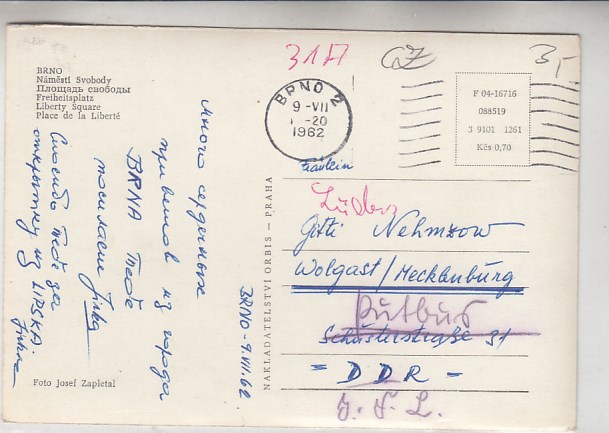 317
CZ
3,-
BRNO
Náměstí Svobody
Площадь свободы
Freiheitsplatz
Liberty Square
Place de la Liberté
BRNO 2
9 -VII
-20
1962
F 04-16716
088519
3 9101 1261
Kčs 0,70
Много сердечных
приветов из города
BRNA тебе
посылает Jirka
Спасибо тебе за
открытку из LIPSKA.
Jirka
BRNO - 9. VII. 62
NAKLADATELSTVÍ ORBIS — PRAHA
Fräulein
Gitti Nehmzow
Wolgast/Mecklenburg
Putbus
Schusterstraße 31
= DDR =
J. F. L.
Foto Josef Zapletal